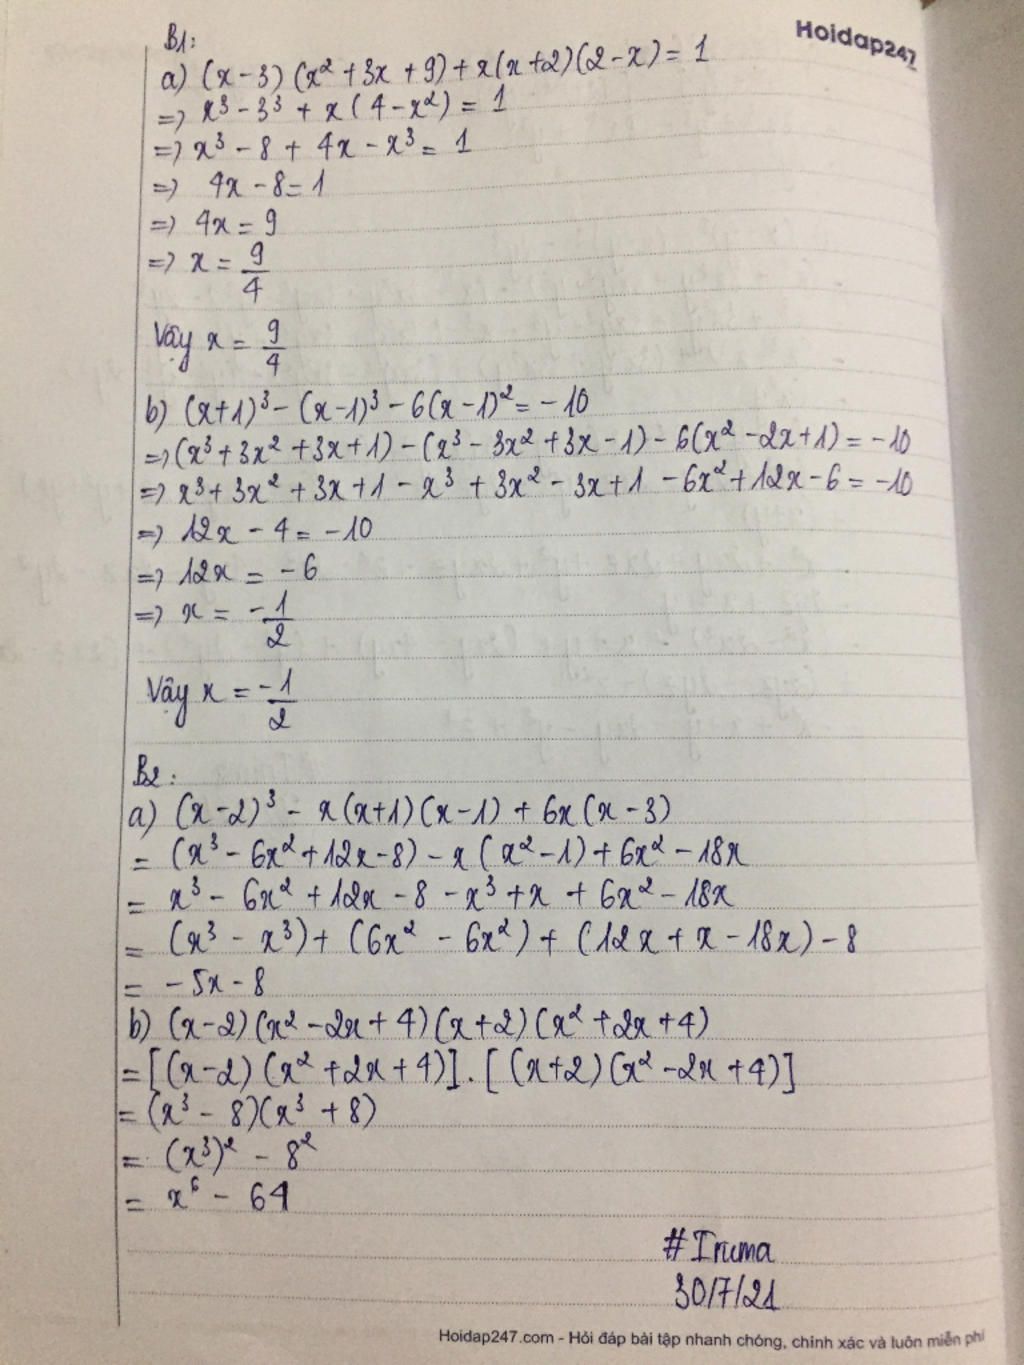 Hoidap247
B1:
a) (x-3)(x² + 3x + 9) + x(x+2)(2-x) = 1
=> x³ - 3³ + x(4 - x²) = 1
=> x³ - 8 + 4x - x³ = 1
=> 4x - 8 = 1
=> 4x = 9
=> x = 9/4
Vậy x = 9/4
b) (x+1)³ - (x-1)³ - 6(x-1)² = -10
=> (x³ + 3x² + 3x + 1) - (x³ - 3x² + 3x - 1) - 6(x² - 2x + 1) = -10
=> x³ + 3x² + 3x + 1 - x³ + 3x² - 3x + 1 - 6x² + 12x - 6 = -10
=> 12x - 4 = -10
=> 12x = -6
=> x = -1/2
Vậy x = -1/2
B2:
a) (x-2)³ - x(x+1)(x-1) + 6x(x-3)
= (x³ - 6x² + 12x - 8) - x(x² - 1) + 6x² - 18x
= x³ - 6x² + 12x - 8 - x³ + x + 6x² - 18x
= (x³ - x³) + (6x² - 6x²) + (12x + x - 18x) - 8
= -5x - 8
b) (x-2)(x² - 2x + 4)(x+2)(x² + 2x + 4)
= [(x-2)(x² + 2x + 4)] . [(x+2)(x² - 2x + 4)]
= (x³ - 8)(x³ + 8)
= (x³)² - 8²
= x⁶ - 64
#Iruma
30/7/21
Hoidap247.com - Hỏi đáp bài tập nhanh chóng, chính xác và luôn miễn phí